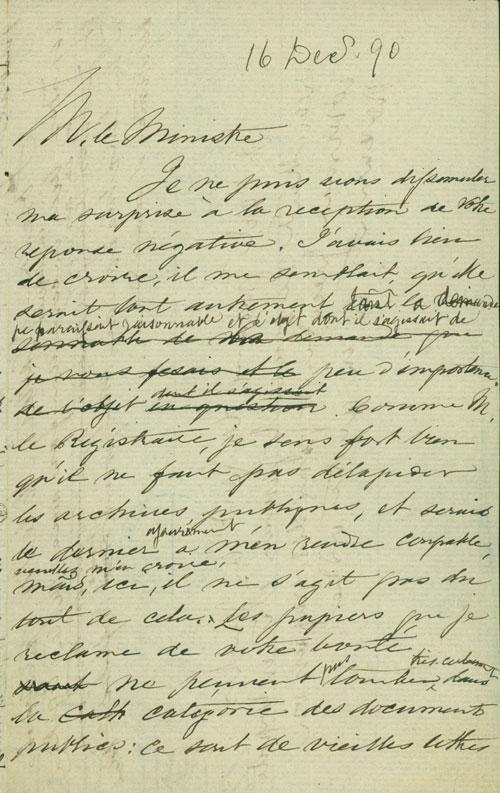 16 Dec. 90
M. le Ministre
Je ne puis vous dissimuler
ma surprise à la réception de votre
reponse négative. J'avais lieu
de croire, il me semblait qu'elle
serait tout autrement la demande
me paraissant raisonnable et l'objet dont il s'agissait de
de ma demande que
je vous fesais et le peu d'importance
dont il s'agissait
de l'objet en question. Comme M.
le Régistraire, je sens fort bien
qu'il ne faut pas délapider
les archives publiques, et serais
assurément
le dernier a m'en rendre coupable,
veuillez m'en croire,
mais, ici, il ne s'agit pas du
tout de cela. Les papiers que je
reclame de votre bonté
ne peuvent pas tomber dans
la catégorie des documents
publics: ce sont de vieilles lettres